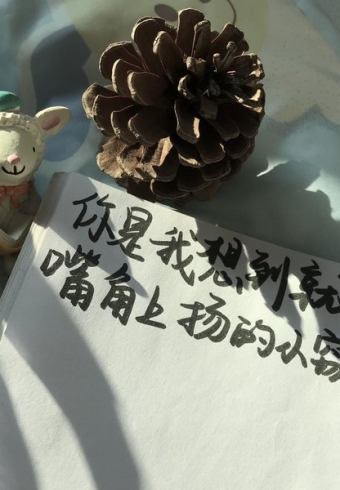 你是我想到就
嘴角上扬的小